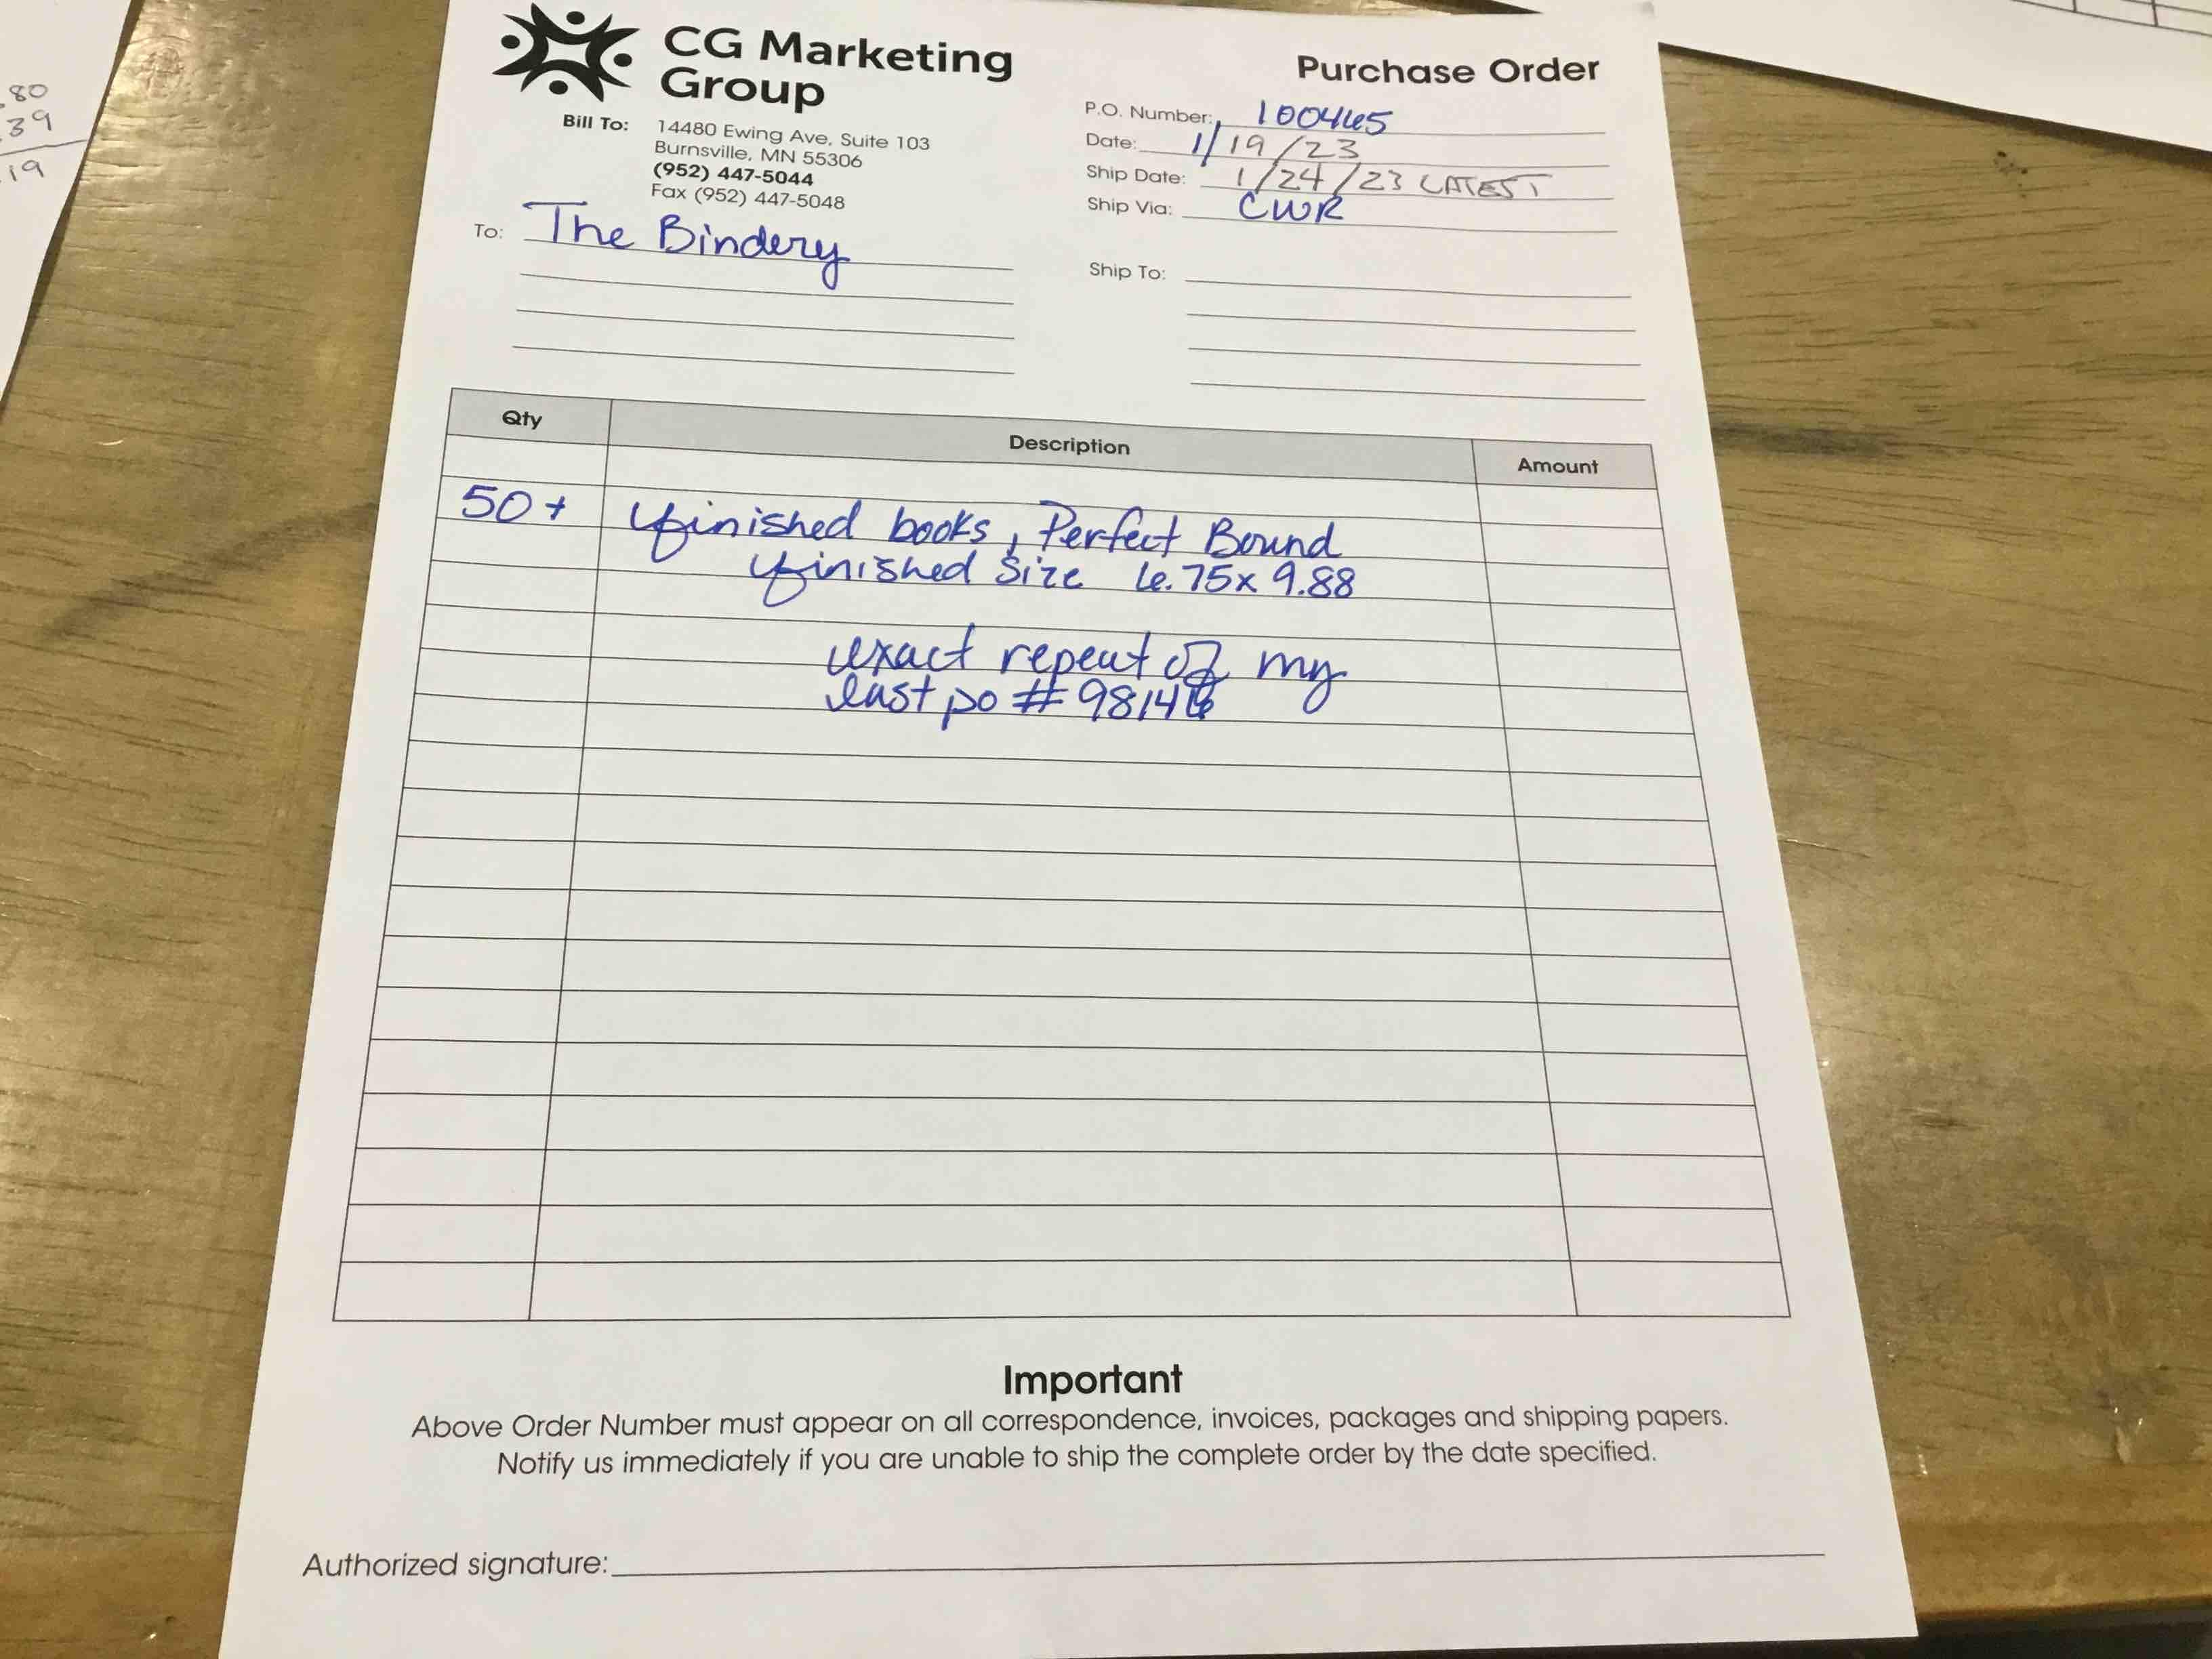 CG Marketing
Group
Purchase Order
Bill To: 14480 Ewing Ave, Suite 103
Burnsville, MN 55306
(952) 447-5044
Fax (952) 447-5048
P.O. Number: 100465
Date: 1/19/23
Ship Date: 1/24/23 LATEST
Ship Via: CWR
To: The Bindery
Ship To:
Qty Description Amount
50+ finished books, Perfect Bound
finished size 6.75x 9.88
exact repeat of my
last po # 98146
Important
Above Order Number must appear on all correspondence, invoices, packages and shipping papers.
Notify us immediately if you are unable to ship the complete order by the date specified.
Authorized signature:
80
39
19